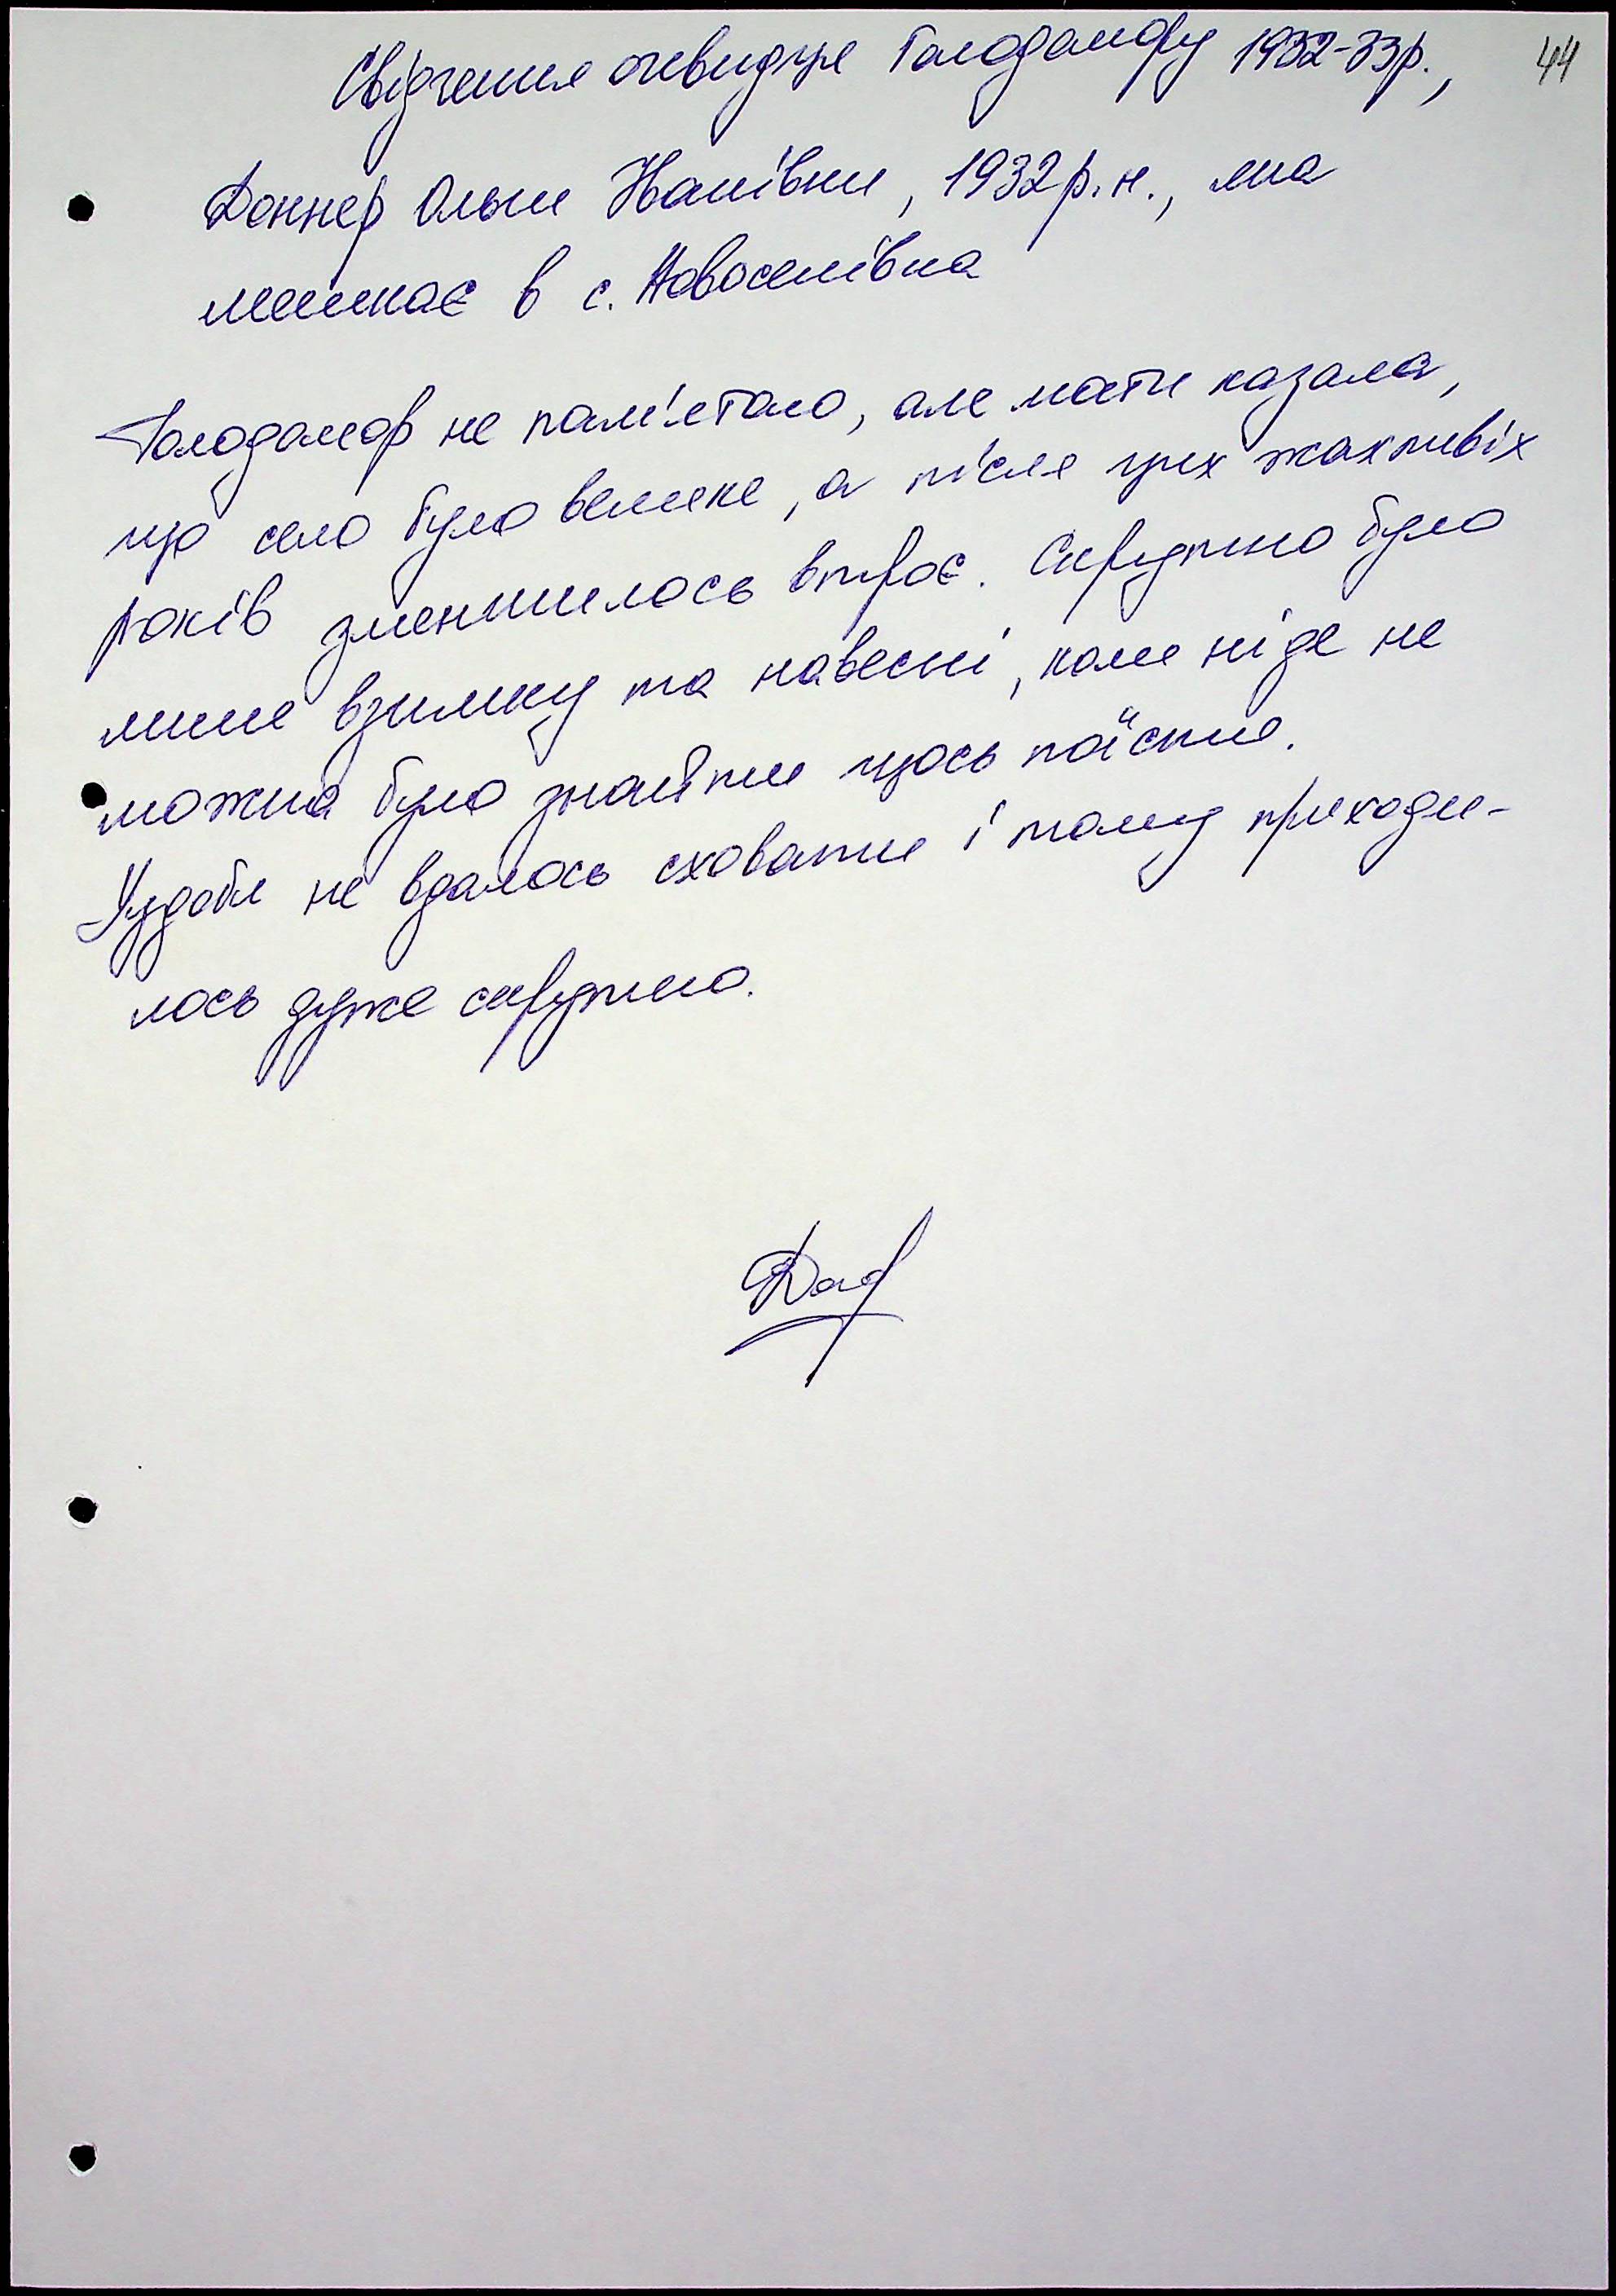 44
Свідчення очевидця Голодомору 1932-33р.,
Доннер Ольги Іванівни, 1932р.н., яка
мешкає в с. Новоселівка
Голодомор не пам'ятаю, але мати казала,
що село було велике, а після цих жахливіх
років зменшилось втроє. Скрутно було
лише взимку та навесні, коли ніде не
можна було знайти щось поїсти.
не вдалось сховати і тому приходи-
лось дуже скрутно.